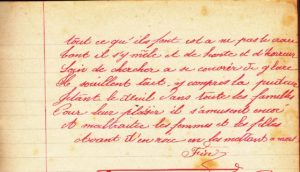 tout ce qu'ils font est a ne pas le croire
tant il s'y mêle et de honte et d'horreur
Loin de chercher a se couvrir de gloire
Ils souillent tout y compris la pudeur
Jetant le deuil dans toute les familles
Pour leur plaisir il s'amusent encor
A maltraiter les femmes et les filles
avant d'en en les mettant a mort
Fin